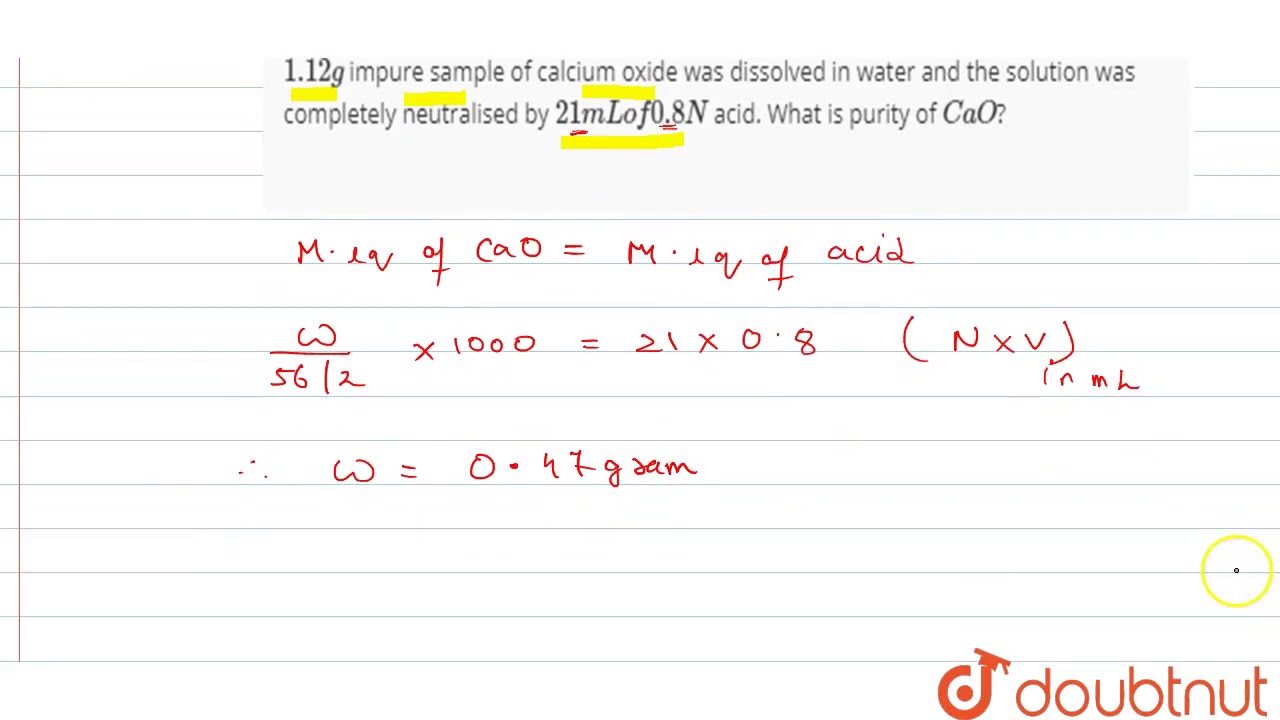 1.12g impure sample of calcium oxide was dissolved in water and the solution was
completely neutralised by 21mLof0.8N acid. What is purity of CaO?
M.eq of CaO = M.eq of acid
w/56/2 × 1000 = 21 × 0.8 (N×V) in mL
∴ w = 0.47 gram
doubtnut